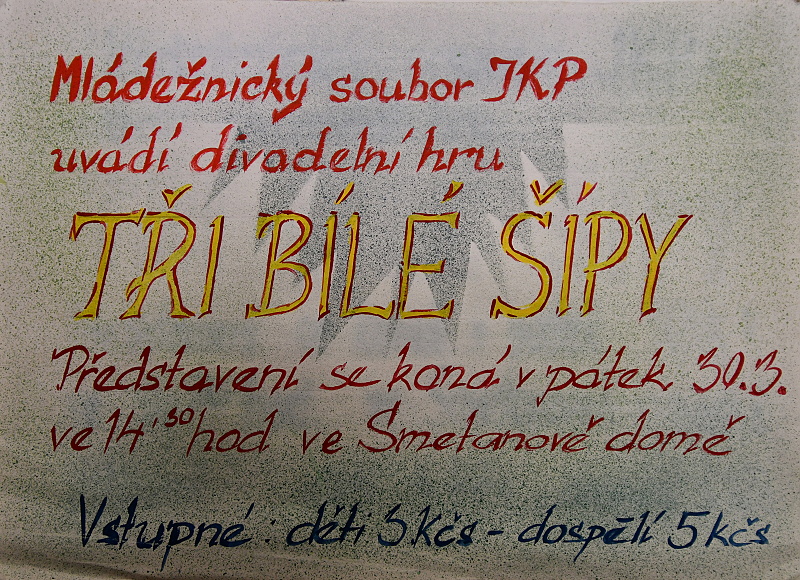 Mládežnický soubor JKP
uvádí divadelní hru
TŘI BÍLÉ ŠÍPY
Představení se koná v pátek 30.3.
ve 14 30 hod ve Smetanově domě
Vstupné: děti 3 Kčs - dospělí 5 kčs